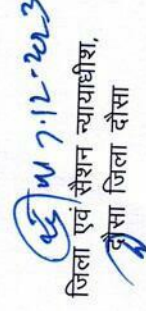 7.12-2023
जिला एवं सैशन न्यायाधीश,
दौसा जिला दौसा